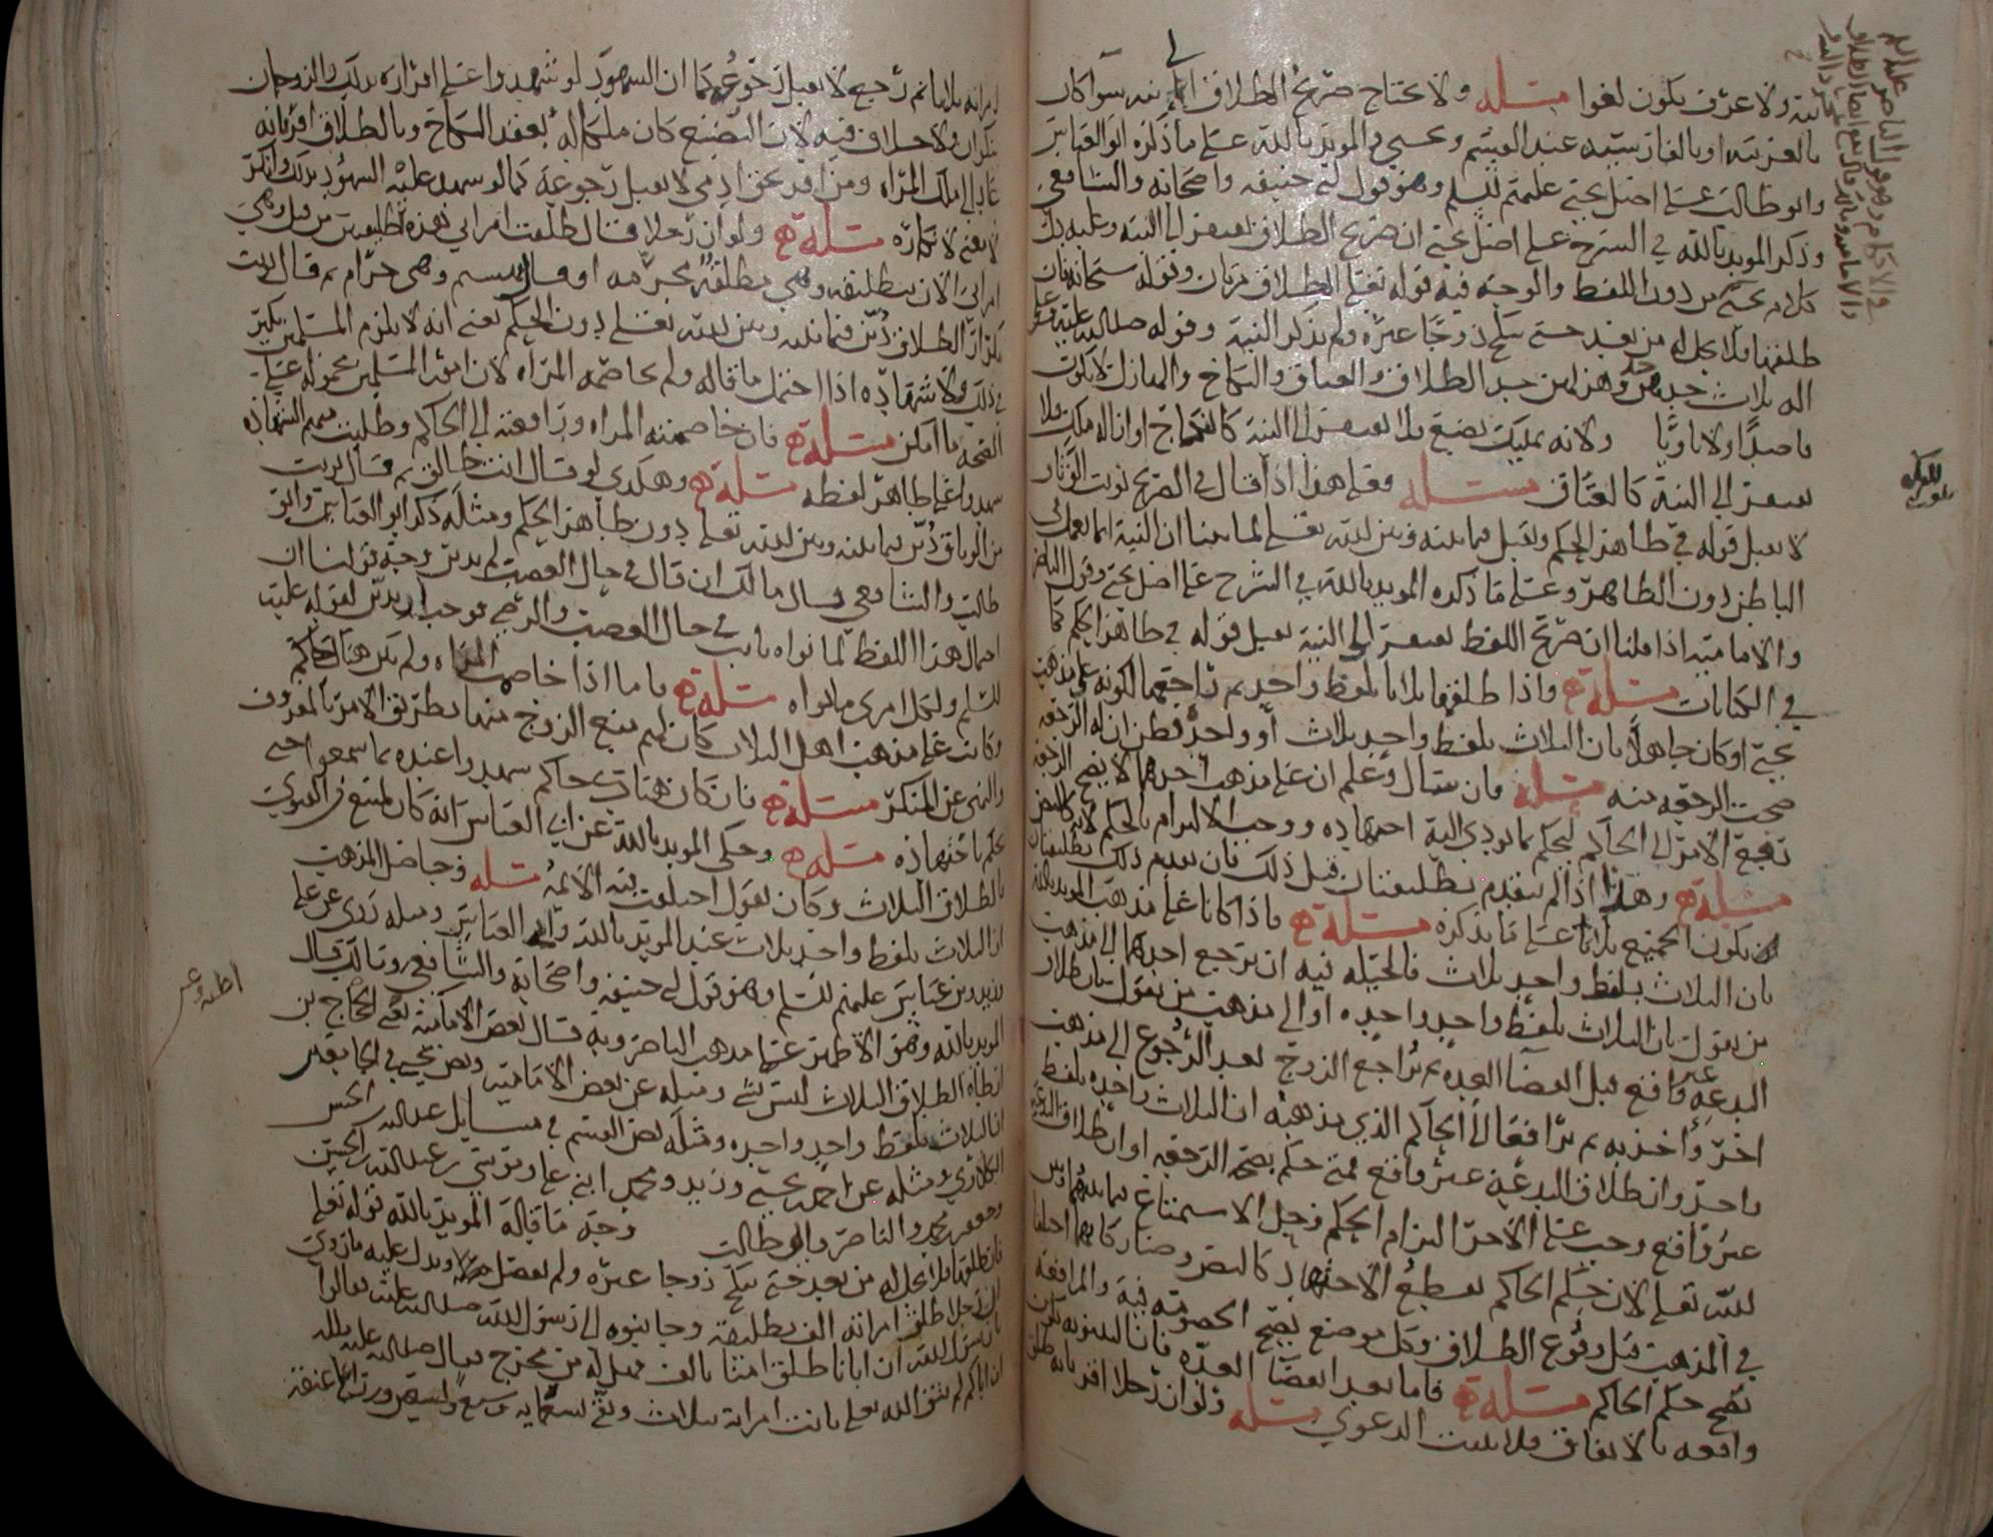 نية ولا عرف يكون لغوا مسئلة ولا يحتاج صريح الطلاق الى نية سوا كان
بالعربية او بالفارسية عند القسم ويحيى والمويد بالله على ما ذكره ابو العباس
وابو طالب على اصل يحيى عليهم السلم وهو قول ابي حنيفه واصحابه والشافعي
وذكر المويد بالله في الشرح على اصل يحيى ان صريح الطلاق يفتقر الى النية وعليه يدل
كلام يحيى من دون اللفظ والوجه فيه قوله تعلى الطلاق مرتان وقوله سبحانه فان
طلقها فلا تحل له من بعد حتى تنكح زوجا غيره ولم يذكر النية وقوله صلى الله عليه وعلى
اله ثلاث جدهن جد وهزلهن جد الطلاق والعتاق والنكاح والهازل لا يكون
قاصدا ولا ناويا ولانه تمليك بضع فلا يفتقر الى النية كالنكاح او ازالة ملك فلا
يفتقر الى النية كالعتاق مسئلة فعلى هذا اذا قال في الصريح نويت الوثاق
لا يقبل قوله في ظاهر الحكم ويقبل فيما بينه وبين الله تعلى لما بينا ان النية انما تعمل في
الباطن دون الظاهر وعلى ما ذكره المويد بالله في الشرح على اصل يحيى وقول الناصر
والامامية اذا قلنا ان صريح اللفظ يفتقر الى النية يقبل قوله في ظاهر الحكم كما
في الكنايات مسئلة واذا طلقها ثلاثا بلفظ واحد ثم راجعها لكونه على مذهب
يحيى او كان جاهلا بان الثلاث بلفظ واحد ثلاث او واحد فظن ان له الرجعه
صحت الرجعه منه مسئلة فان سال وعلم ان على مذهب احدهما لا يصح الرجعه
رفع الامر الى الحاكم ليحكم بما يودي اليه اجتهاده ووجب الالتزام بالحكم لانه كالنص
مسئلة وهذا اذا لم يتقدم تطليقتان قبل ذلك فان تقدم ذلك تطليقتان
يكون الجميع ثلاثا على ما نذكره مسئلة فاذا كانا على مذهب المويد بالله
بان الثلاث بلفظ واحد ثلاث فالحيلة فيه ان يرجع احدهما الى مذهب
من يقول بان الثلاث بلفظ واحد واحده او الى مذهب من يقول بان طلاق
البدعه غير واقع قبل انقضا العده ثم يراجع الزوج بعد الرجوع الى مذهب
اخر واخذ به ثم ترافعا الى الحاكم الذي مذهبه ان الثلاث واحده بلفظ
واحد وان طلاق البدعة غير واقع فمتى حكم بصحة الرجعه او ان طلاق البدعة
غير واقع وجب على الاخر التزام الحكم وحل الاستمتاع فيما بينهما وبين
الله تعلى لان حكم الحاكم يقطع الاجتهاد كالنص وصار كانهما
في المذهب قبل وقوع الطلاق وكل موضع يصح الخصومه فيه والمرافعه
يصح حكم الحاكم مسئلة فاما بعد انقضا العده فان البينونه تكون
واقعه بالاتفاق فلا يثبت الدعوى مسئلة ولو ان رجلا اقر بانه طلق
وهو قول الناصر عليه السلم
امراته ثلاثا ثم رجع لا يقبل رجوعه كما ان الشهود لو شهدوا على اقراره بذلك والزوجان
ينكران ولا خلاف فيه لان البضع كان ملكا له بعقد النكاح وبالطلاق اقر بانه
عاد الى ملك المراه ومن اقر بحق ادمي لا يقبل رجوعه كما لو شهد عليه الشهود بذلك وانكر
لا يغني لانكاره مسئلة ولو ان رجلا قال طلقت امراتي هذه تطليقتين من قبل وهي
امراتي الان بتطليقة وهي مطلقة محرمه او قال وهي حرام ثم قال نويت
تكرار الطلاق دين فيما بينه وبين الله تعلى دون الحكم يعني انه لا يلزم المسلمين نكير
في ذلك ولا شهاده اذا احتمل ما قاله ولم يخاصمه المراه لان امور المسلمين محموله على
الصحه ما امكن مسئلة فان خاصمته المراه ورافعته الى الحاكم وطلبت منهم الشهاده
شهدوا على ظاهر لفظه مسئلة وهكذى لو قال انت طالق ثم قال نويت
من الوثاق دين فيما بينه وبين الله تعلى دون ظاهر الحكم ومثله ذكر ابو العباس وابو
طالب والشافعي وقال مالك ان قال في حال الغضب لم يدين وجه قولنا ان
احتمال هذا اللفظ لما نواه ثابت في حال الغضب والرضى فوجب ان يدين لقوله عليه
السلم ولكل امرئ ما نواه مسئلة فاما اذا خاصمت المراه ولم يكن هناك حاكم
وكانت على مذهب اهل الثلاث كان لهم منع الزوج منها بطريق الامر بالمعروف
والنهي عن المنكر مسئلة فان كان هناك حاكم شهدوا عنده بما سمعوا حتى
يحكم باجتهاده مسئلة وحكى المويد بالله عن ابي العباس انه كان يمتنع من الفتوى
بالطلاق الثلاث وكان يقول اختلفت فيه الائمة مسئلة وحاصل المذهب
ان الثلاث بلفظ واحد ثلاث عند المويد بالله وابي العباس ومثله روى عن علي
وابن عباس عليهم السلم وهو قول ابي حنيفه واصحابه والشافعي ومالك قال
المويد بالله وهو الاظهر على مذهب الناصر وبه قال بعض الامامية وعن الحجاج بن
ارطاه الطلاق الثلاث ليس بشي ومثله عن بعض الامامية ونص يحيى في
ان الثلاث بلفظ واحد واحده ومثله نص القسم في مسايل عبدالله بن الحسن
الكلاري ومثله عن احمد بن يحيى وزيد ومحمد ابني علي وموسى بن عبدالله بن الحسن
وجعفر بن محمد والناصر وابي طالب وجه ما قاله المويد بالله قوله تعلى
فان طلقها فلا تحل له من بعد حتى تنكح زوجا غيره ولم يفصل ويدل عليه ما روي
ان رجلا طلق امراته الف تطليقة وجا بنوه الى رسول الله صلى الله عليه فقالوا
يا رسول الله ان ابانا طلق امنا بالف فهل له من مخرج فقال صلى الله عليه واله
ان اباكم لم يتق الله تعلى بانت امراته بثلاث وبقي تسعمايه وسبع وتسعون وزرا في عنقه